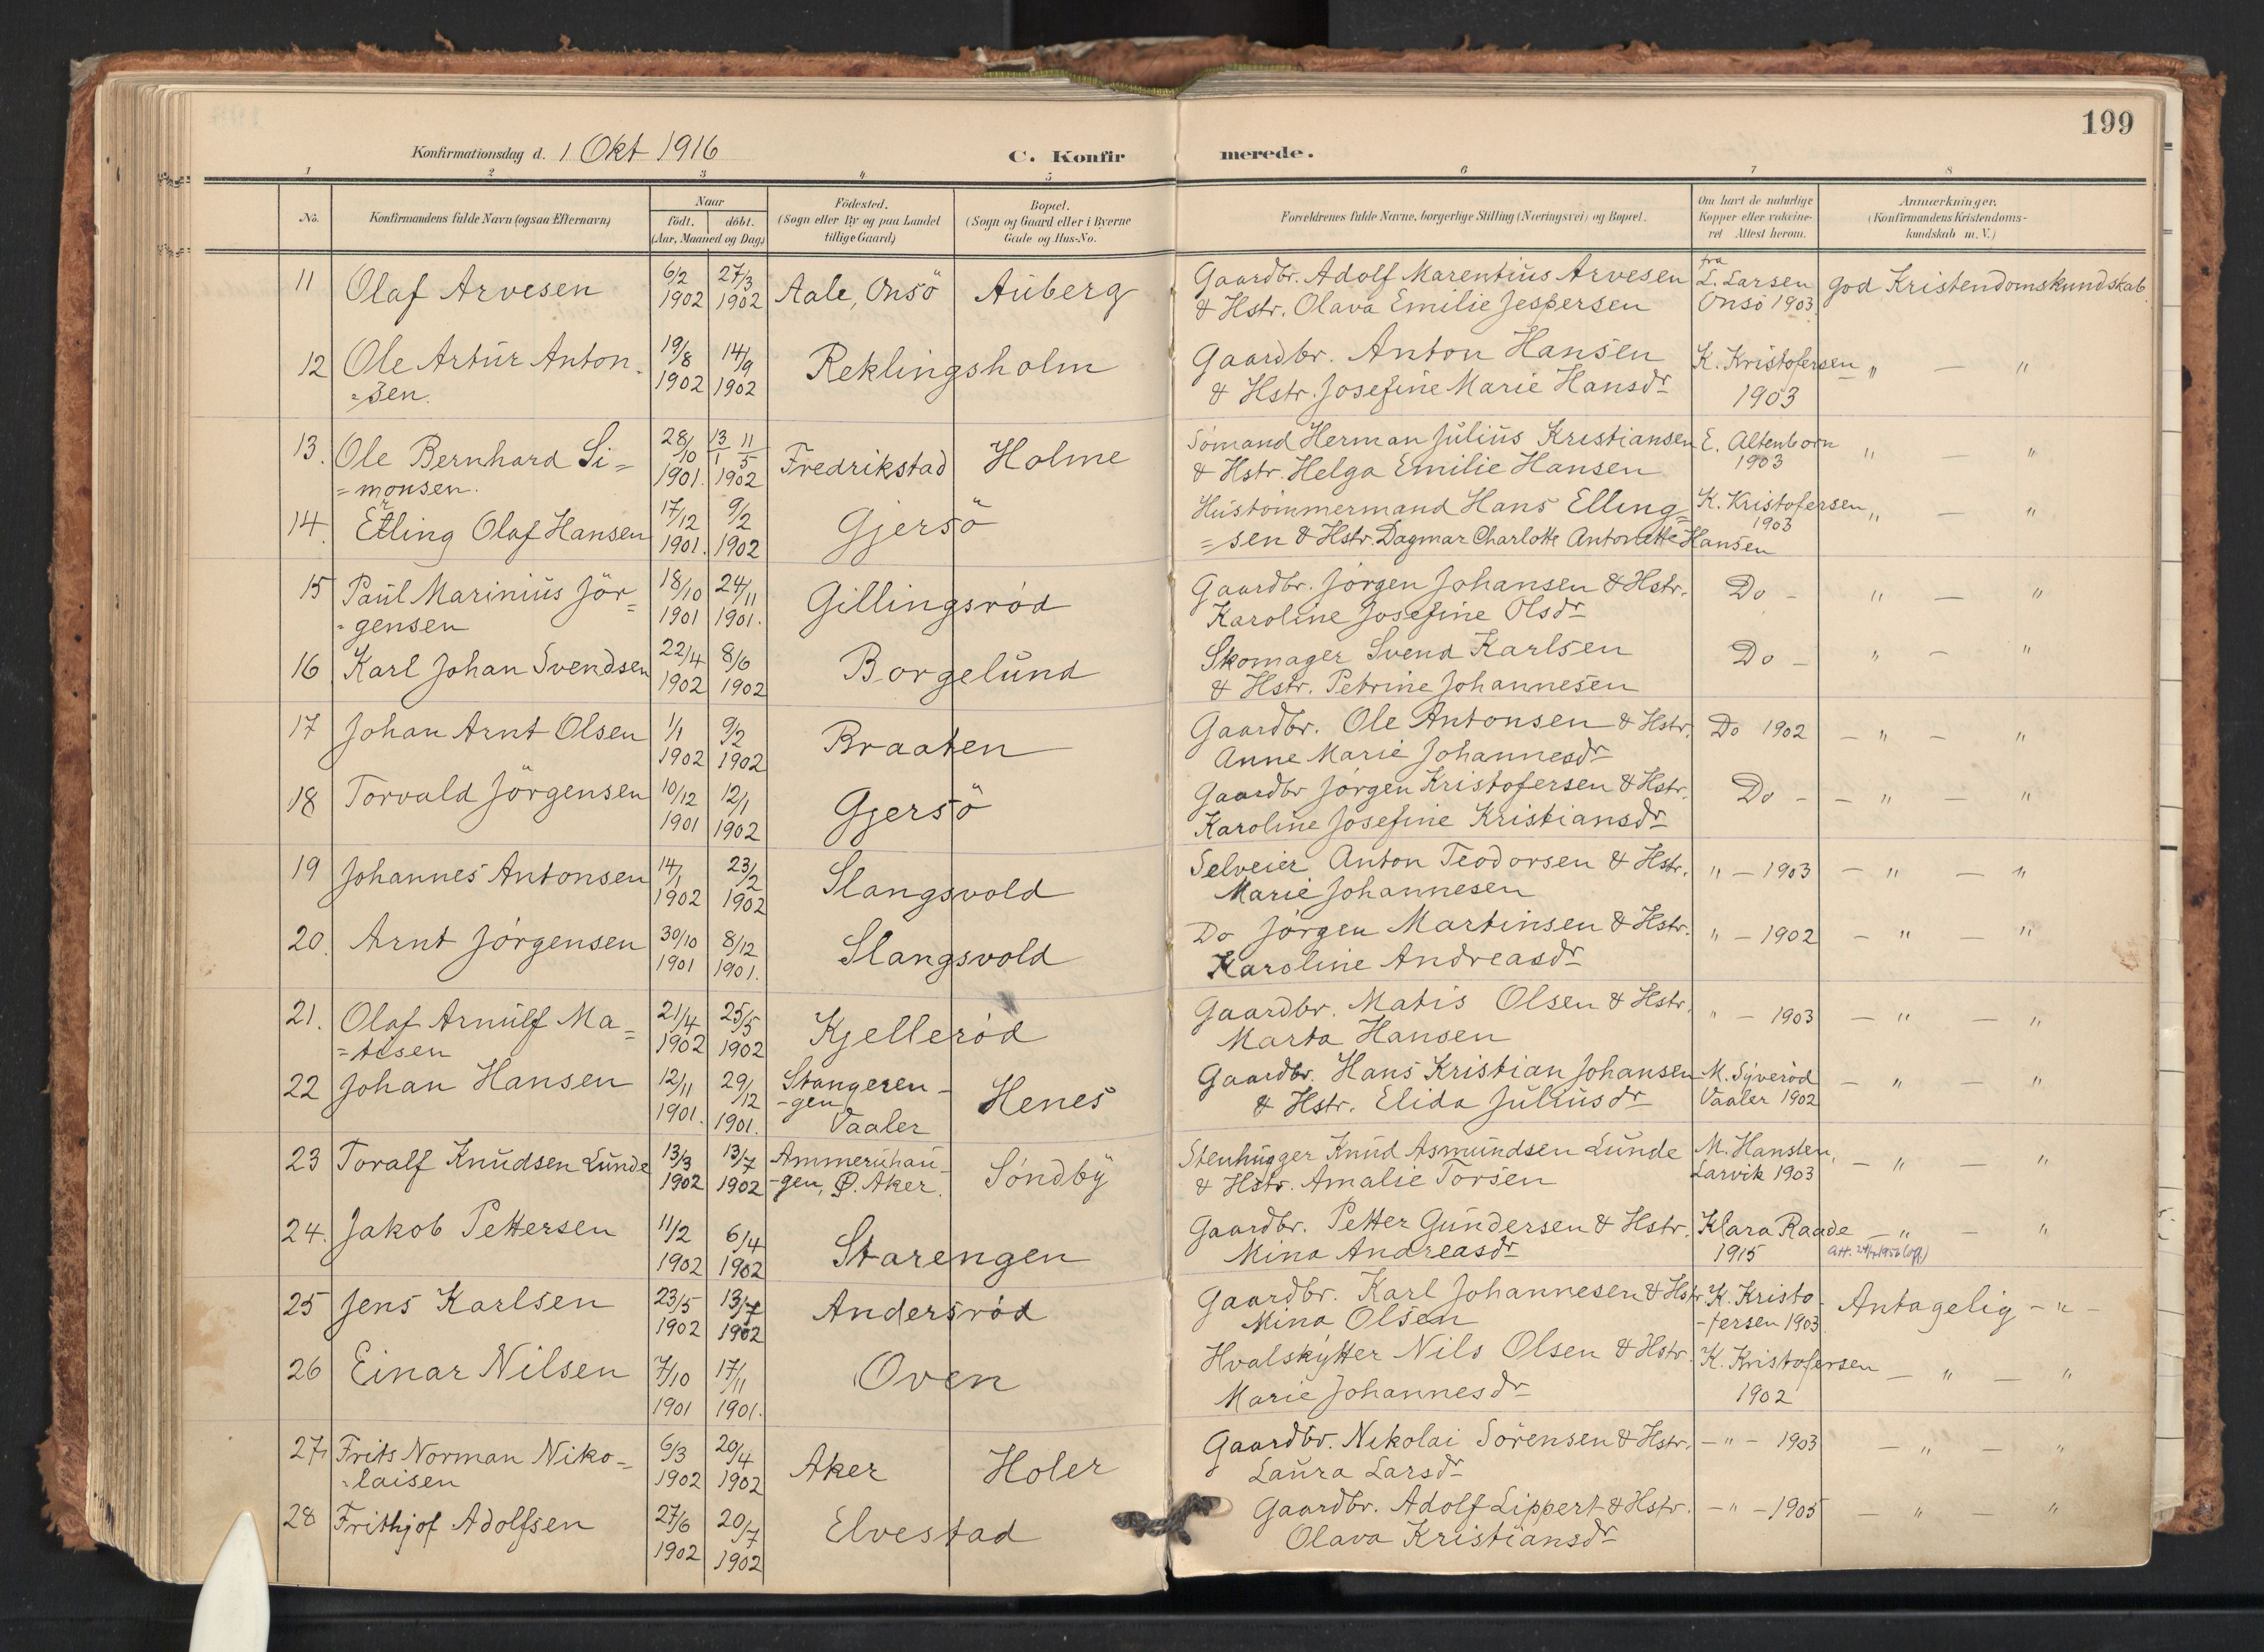 199
Konfirmationsdag d. 1 Okt 1916
C. Konfirmerede.
1 2 3 4 5 6 7 8
No. Konfirmandens fulde Navn (ogsaa Efternavn) Naar født. døbt. (Aar, Maaned og Dag) Fødested. (Sogn eller By og paa Landet tillige Gaard) Bopæl. (Sogn og Gaard eller i Byerne Gade og Hus-No. Forældrenes fulde Navne, borgerlige Stilling (Næringsvei) og Bopæl. Om havt de naturlige Kopper eller vakcineret Attest herom. Anmærkninger. (Konfirmandens Kristendomskundskab m. V.)
11 Olaf Arvesen 6/2 1902 27/3 1902 Aale, Onsö Auberg Gaardbr. Adolf Marentius Arvesen fra L. Larsen god Kristendomskundskab
& Hstr. Olava Emilie Jespersen Onsö 1903.
12 Ole Artur Anton- 19/8 1902 14/9 1902 Reklingsholm Gaardbr. Anton Hansen K. Kristofersen " — "
=sen. & Hstr. Josefine Marie Hansdr 1903
13. Ole Bernhard Si= 28/10 1901. 13/1 11/5 1902 Fredrikstad Holme Sömand Herman Julius Kristiansen E. Altenborn " — "
=monsen. & Hstr. Helga Emilie Hansen 1903
14. Erling Olaf Hansen 17/12 1901. 9/2 1902 Gjersö Hustömmermand Hans Elling= K. Kristofersen " — "
=sen & Hstr. Dagmar Charlotte Antonette Hansen 1903
15 Paul Marinius Jör= 18/10 1901 24/11 1901. Gillingsröd Gaardbr. Jörgen Johansen & Hstr. Do - " — "
=gensen Karoline Josefine Olsdr
16 Karl Johan Svendsen 22/4 1902 8/6 1902 Borgelund Skomager Svend Karlsen Do - " — "
& Hstr. Petrine Johannesen
17 Johan Arnt Olsen 1/1 1902 9/2 1902 Braaten Gaardbr. Ole Antonsen & Hstr. Do 1902 — " — "
Anne Marie Johannesdr
18 Torvald Jörgensen 10/12 1901 12/1 1902 Gjersö Gaardbr Jörgen Kristofersen & Hstr. Do - — " — "
Karoline Josefine Kristiansdr
19 Johannes Antonsen 14/1 1902 23/2 1902 Slangsvold Selveier Anton Teodorsen & Hstr. " — 1903 — " — "
Marie Johannesen
20. Arnt Jörgensen 30/10 1901 8/12 1901. Slangsvold Do Jörgen Martinsen & Hstr. " — 1902 — " — "
Karoline Andreasdr
21. Olaf Arnulf Ma= 21/4 1902 25/5 1902 Kjelleröd Gaardbr. Matis Olsen & Hstr. " — 1903 — " — "
=tisen Marta Hansen
22 Johan Hansen 12/11 1901. 29/12 1901. Stangeren-gen, Vaaler Henes Gaardbr. Hans Kristian Johansen M. Syveröd — " — "
& Hstr. Elida Juliusdr Vaaler 1902
23 Toralf Knudsen Lunde 13/3 1902 13/7 1902 Ammeruhau-gen, Ø. Aker. Söndby Stenhugger Knud Asmundsen Lunde M. Hansten, — " — "
& Hstr. Amalie Torsen Larvik 1903
24. Jakob Pettersen 11/2 1902 6/4 1902 Starengen Gaardbr. Petter Gundersen & Hstr. Klara Raade — " — "
Mina Andreasdr 1915
25 Jens Karlsen 23/5 1902 13/7 1902 Andersröd Gaardbr. Karl Johannesen & Hstr K. Kristo- Antagelig — " —
Mina Olsen -fersen 1903
26 Einar Nilsen 7/10 1901 17/11 1901. Oven Hvalskytter Nils Olsen & Hstr. K. Kristofersen — " — "
Marie Johannesdr 1902
27. Frits Norman Niko= 6/3 1902 20/4 1902 Aker Holer Gaardbr. Nikolai Sörensen & Hstr. — " — 1903 — " — "
=laisen Laura Larsdr
28 Frithjof Adolfsen 27/6 1902 20/7 1902 Elvestad Gaardbr. Adolf Lippert & Hstr. — " — 1905 — " — "
Olava Kristiansdr